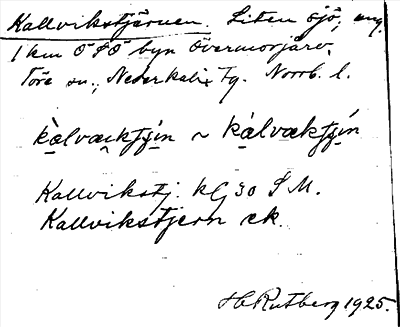 Kallvikstjärnen. Liten sjö, ung.
1 km ÖSÖ byn Övermorjärv,
Töre sn., Nederkalix tg. Norrb. l.
kàlvæktjin ~ kálvæktjín
Kallvikstj. kG 30 S M.
Kallvikstjern ek.
HCRutberg 1925.